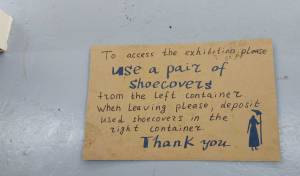 To access the exhibition please
use a pair of
shoecovers
from the left container
When leaving please, deposit
used shoecovers in the
right container
Thank you